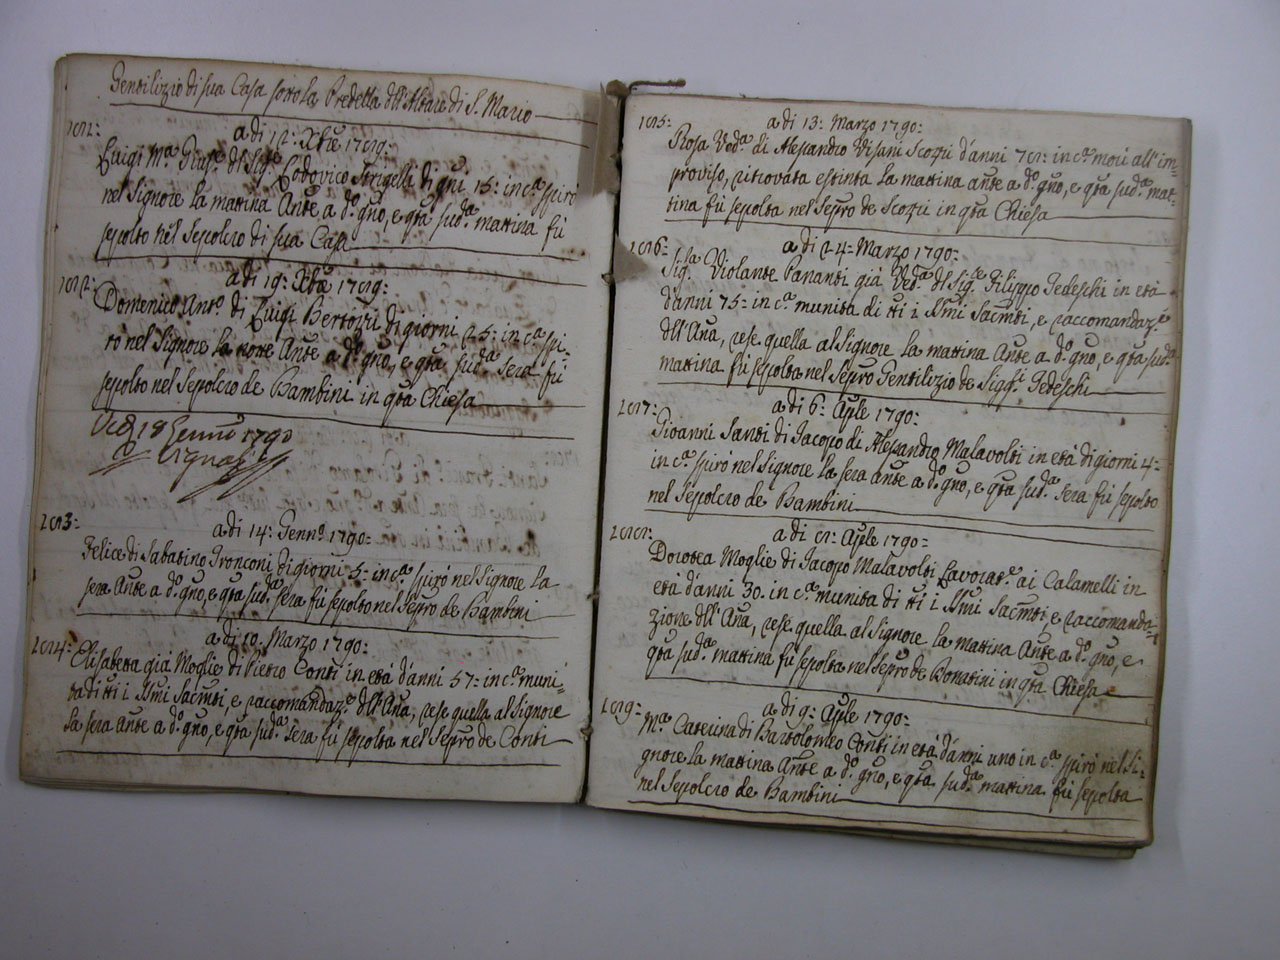 Gentilizio di sua Casa sotto la Predella dll'Altare di S. Mario
a di 12: Xbre 1789:
Luigi Mª Gius.e dl Sig.e Lodovico Strigelli di gni 15: in cª spirò
nel Signore la mattina Ante a dº gno, e qta sudª mattina fù
sepolto nel Sepolcro di sua Casa
a di 19: Xbre 1789:
Domenico Antº di Luigi Bertozzi di giorni 25: in cª spi-
rò nel Signore la notte Ante a dº gno, e qta sudª sera fù
sepolto nel Sepolcro de Bambini in qta Chiesa
18 Genn 1790
283:
a di 14: Gennº 1790:
Felice di Sabatino Tronconi di giorni 5: in cª spirò nel Signore la
sera Ante a dº gno, e qta sudª sera fù sepolto nel Sepro de Bambini
284:
a di 10: Marzo 1790:
Elisabetta già Moglie di Pietro Conti in età d'anni 57: in cª muni-
ta di tti i SSmi Sacmti, e raccomandazª dll'Ana, rese quella al Signore
la sera Ante a dº gno, e qta sudª sera fù sepolta nel Sepro de Conti
185:
a di 13: Marzo 1790:
Rosa Vedª di Alessandro Visani Scozzi d'anni 78: in cª morì all'im=
proviso, ritrovata estinta la mattina ante a dº gno, e qta sudª mat-
tina fù sepolta nel Sepro de Scozzi in qta Chiesa
186:
a di 24= Marzo 1790:
Sigª Violante Pananti già Vedª dl Sig.e Filippo Tedeschi in età
d'anni 75= in cª munita di tti i SSmi Sacmti, e raccomandaz.e
dll'Ana, rese quella al Signore la mattina Ante a dº gno, e qta sudª
mattina fù sepolta nel Sepro Gentilizio de Sigg.i Tedeschi
287:
a di 6: Aple 1790:
Gioanni Santi di Jacopo di Alessandro Malavolti in età di giorni 4=
in cª spirò nel Signore la sera ante a dº gno, e qta sudª sera fù sepolto
nel Sepolcro de Bambini
288:
a di 8: Aple 1790:
Dorotea Moglie di Jacopo Malavolti Lavorat.e ai Calamelli in
età d'anni 30. in cª munita di tti i SSmi Sacmti, e raccomanda-
zione dll'Ana, rese quella al Signore la mattina Ante a dº gno, e
qta sudª mattina fù sepolta nel Sepro de Donatini in qta Chiesa
189:
a di 9: Aple 1790:
Mª Caterina di Bartolomeo Conti in età d'anni uno in cª spirò nel Si-
gnore la mattina Ante a dº gno, e qta sudª mattina fù sepolta
nel Sepolcro de Bambini